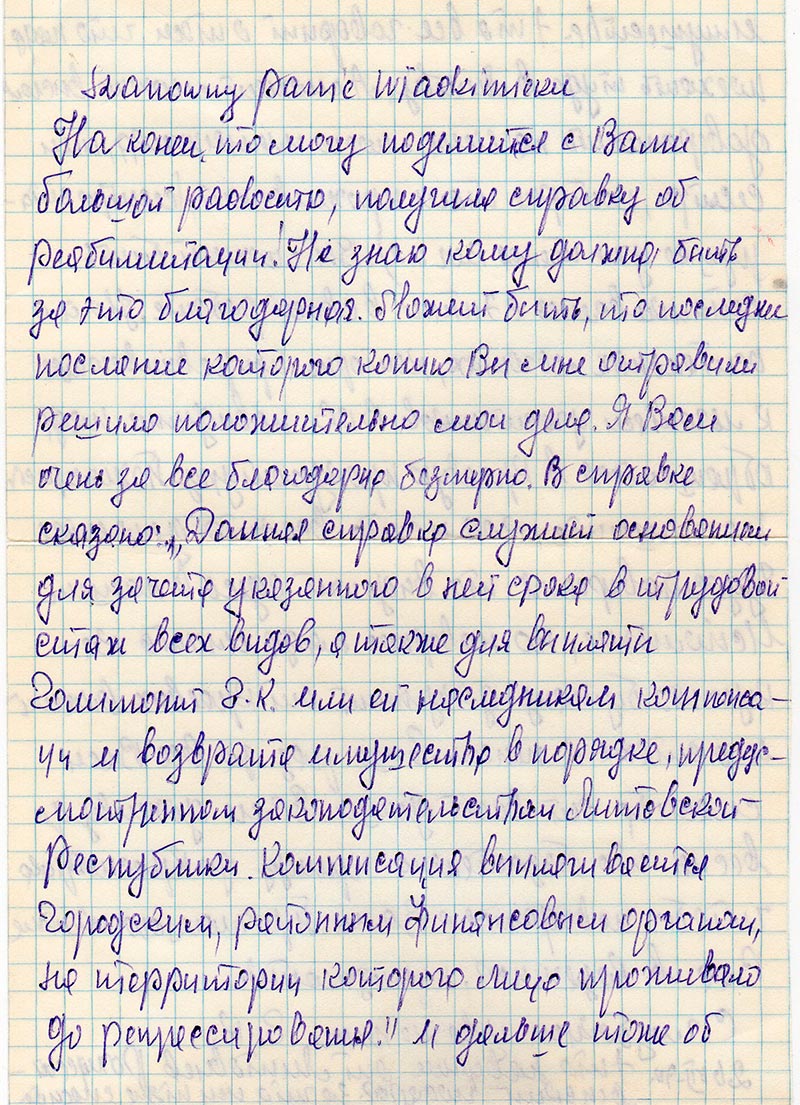 Szanowny Panie Władimirku
На конец, то могу поделиться с Вами
большой радостю, получила справку об
реабилитации! Не знаю кому должна быть
за это благодарная. Может быть, то последне
послание которого копию Вы мне отправили
решило положительно мои дела. Я Вам
очень за все благодарна безмерно. В справке
сказано: „Данная справка служит основанием
для зачета указанного в ней срока в трудовой
стаж всех видов, а также для выплаты
Голимонт З.К. или ей наследникам компенса-
ции и возврата имущества в порядке, предус-
мотренном законодательством Литовской
Республики. Компенсация выплачивается
городским, районным финансовым органам,
на территории которого лицо проживало
до репрессирования." И дальше тоже об